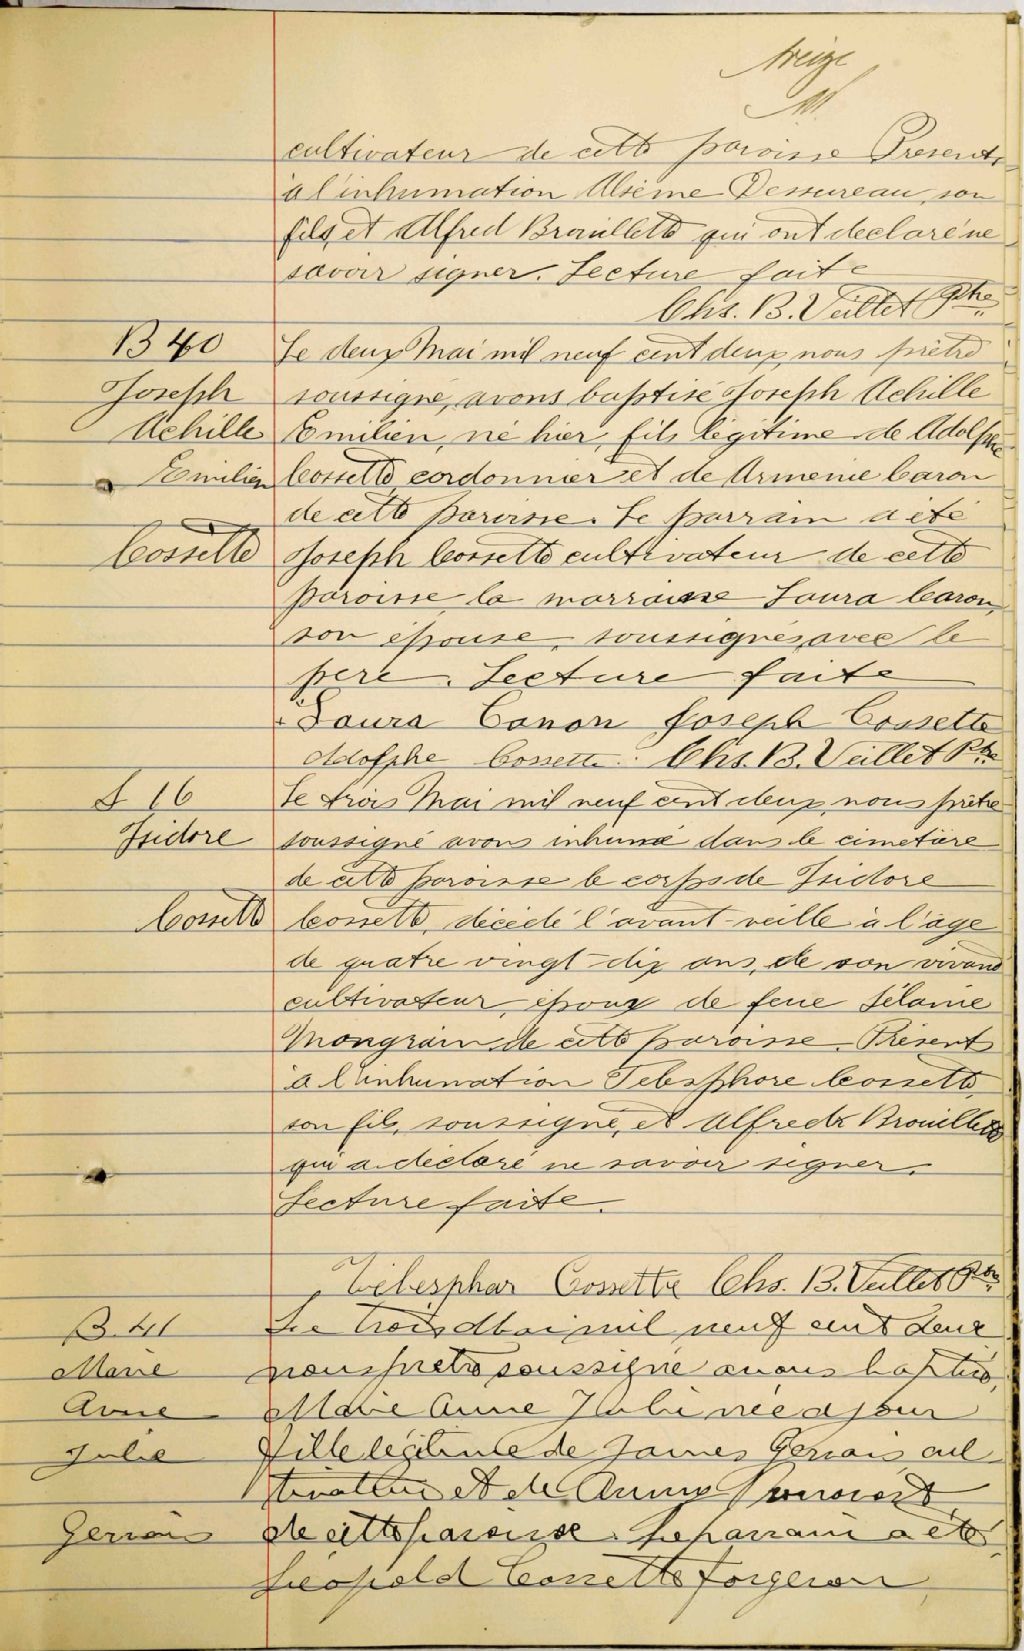 treize
cultivateur de cette paroisse Presents
à l'inhumation Alséme Dessureau, son
fils, et Alfred Brouillette qui ont declaré ne
savoir signer. Lecture faite
Chs. B. Veillet Ptre
B 40
Joseph
Achille
Emilien
Cossette
Le deux Mai mil neuf cent deux, nous prêtre
soussigné, avons baptisé Joseph Achille
Emilien, né hier, fils légitime de Adolphe
Cossette, cordonnier et de Armenie Caron
de cette paroisse. Le parrain a été
Joseph Cossette cultivateur de cette
paroisse, la marraine Laura Caron,
son épouse, soussignés avec le
père. Lecture faite
Laura Canon Joseph Cossette
Adolphe Cossette. Chs. B. Veillet Ptre
S 16
Isidore
Cossette
Le trois Mai mil neuf cent deux, nous prêtre
soussigné avons inhumé dans le cimetière
de cette paroisse le corps de Isidore
Cossette, décédé l'avant-veille à l'age
de quatre vingt-dix ans, de son vivant
cultivateur, époux de feue Zélanie
Mongrain de cette paroisse. Présents
à l'inhumation Telesphore Cossette,
son fils, soussigné, et Alfred Brouillette
qui a déclaré ne savoir signer.
Lecture faite.
Télesphar Cossette Chs. B. Veillet Ptre
B. 41
Marie
Anne
Julie
Gervais
Le trois Mai mil neuf cent deux
nous prêtre soussigné avons baptisé,
Marie Anne Julie née a jour
fille légitime de James Gervais cul-
tivateur et de Anny
de cette paroisse. Le parrain a été
Léopold Cossette forgeron,